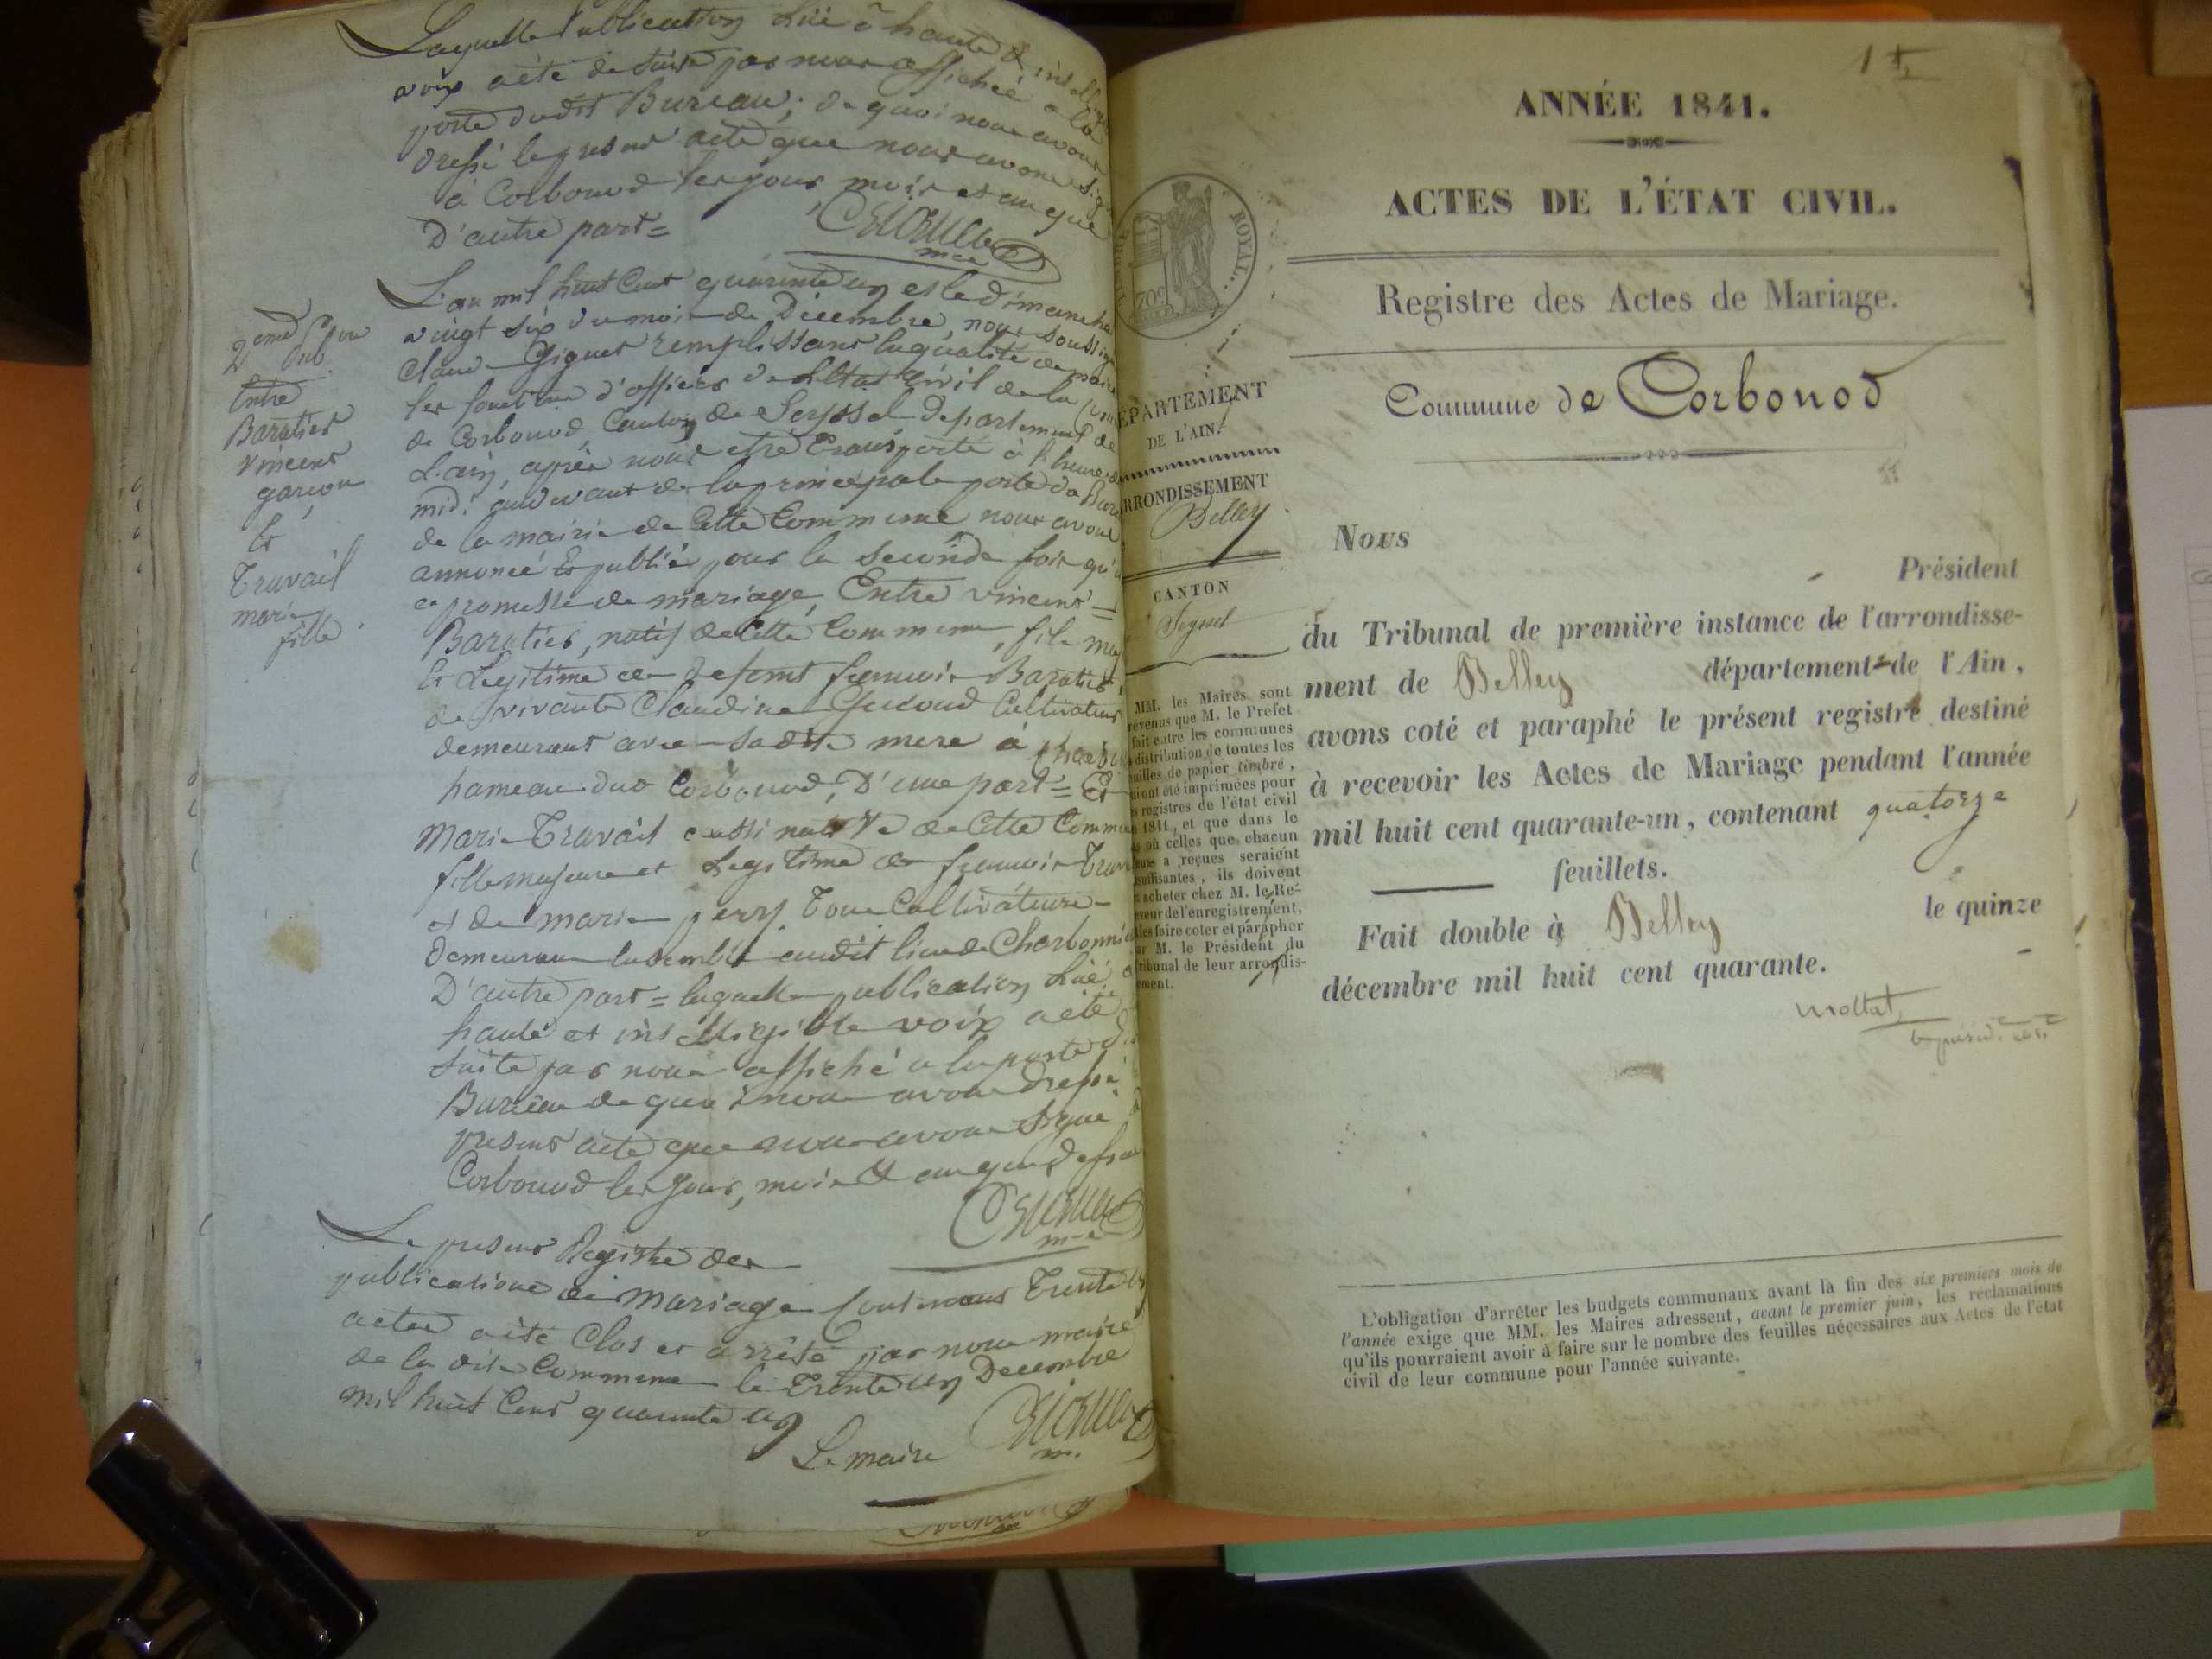 Laquelle Publication Luë à haute & intelligi
voix a été de suite par nous affichée a la
porte dudit Bureau; de quoi nous avons
dressé le present acte que nous avons sig
à Corbonod les jour, mois et an que
D'autre part =
L'an mil huit Cent quarante un et le dimanche
vingt six du mois de Décembre, nous soussig
Claude Giguet remplissant la qualité de maire
les fonctions d'officier de L'Etat Civil de la Com
de Corbonod, Canton de Seyssel Departement de
L'ain, après nous etre transporté à l'heure de
midi audevant de la principale porte du Bure
de la mairie de Cette Commune nous avons
annoncé Et publié pour la Seconde fois qu'il
promesse de mariage, Entre Vincent =
Baratier, natif de Cette Commune, fils ma
Et Legitime de defunt francois Baratier,
de vivante Claudine Cultivateur
demeurant avec sa dite mere à Charbon
hameau dud Corbonod, D'une part = Et
Marie Travail aussi native de Cette Commu
fille majeure et Legitime de francois Trav
et de marie perry Tous Cultivateurs
demeurant Ensemble audit lieu de Charbonni
D'autre part = laquelle publication Luë
haute et intelligible voix a été
suite par nous affiché a la porte d
Bureau de quoi nous avons dressé
present acte que nous avons Signé
Corbonod les jour, mois & an que dessus
m-e
Le present Registre des
publications de mariage Contenant Trente un
actes a été Clos et arrêté par nous maire
de la dite Commune le Trente un Decembre
mil huit Cent quarante un
Le maire
m.
2eme
pub.
Entre
Baratier
Vincent
garçon
Et
Travail
marie
fille
1
ANNÉE 1841.
ACTES DE L'ÉTAT CIVIL.
Registre des Actes de Mariage.
Commune de Corbonod
ROYAL.
70c
ÉPARTEMENT
DE L'AIN.
RRONDISSEMENT
Belley
CANTON
Seyssel
MM. les Maires sont
révenus que M. le Préfet
fait entre les communes
distribution de toutes les
uilles de papier timbré,
ui ont été imprimées pour
s registres de l'état civil
1841, et que dans le
s où celles que chacun
eux a reçues seraient
suffisantes, ils doivent
acheter chez M. le Re-
eveur de l'enregistrement,
les faire coter et parapher
ar M. le Président du
ribunal de leur arrondis-
ement.
Nous
Président
du Tribunal de première instance de l'arrondisse-
ment de Belley département de l'Ain,
avons coté et paraphé le présent registre destiné
à recevoir les Actes de Mariage pendant l'année
mil huit cent quarante-un, contenant quatorze
feuillets.
Fait double à Belley le quinze
décembre mil huit cent quarante.
L'obligation d'arrêter les budgets communaux avant la fin des six premiers mois de
l'année exige que MM. les Maires adressent, avant le premier juin, les réclamations
qu'ils pourraient avoir à faire sur le nombre des feuilles nécessaires aux Actes de l'état
civil de leur commune pour l'année suivante.